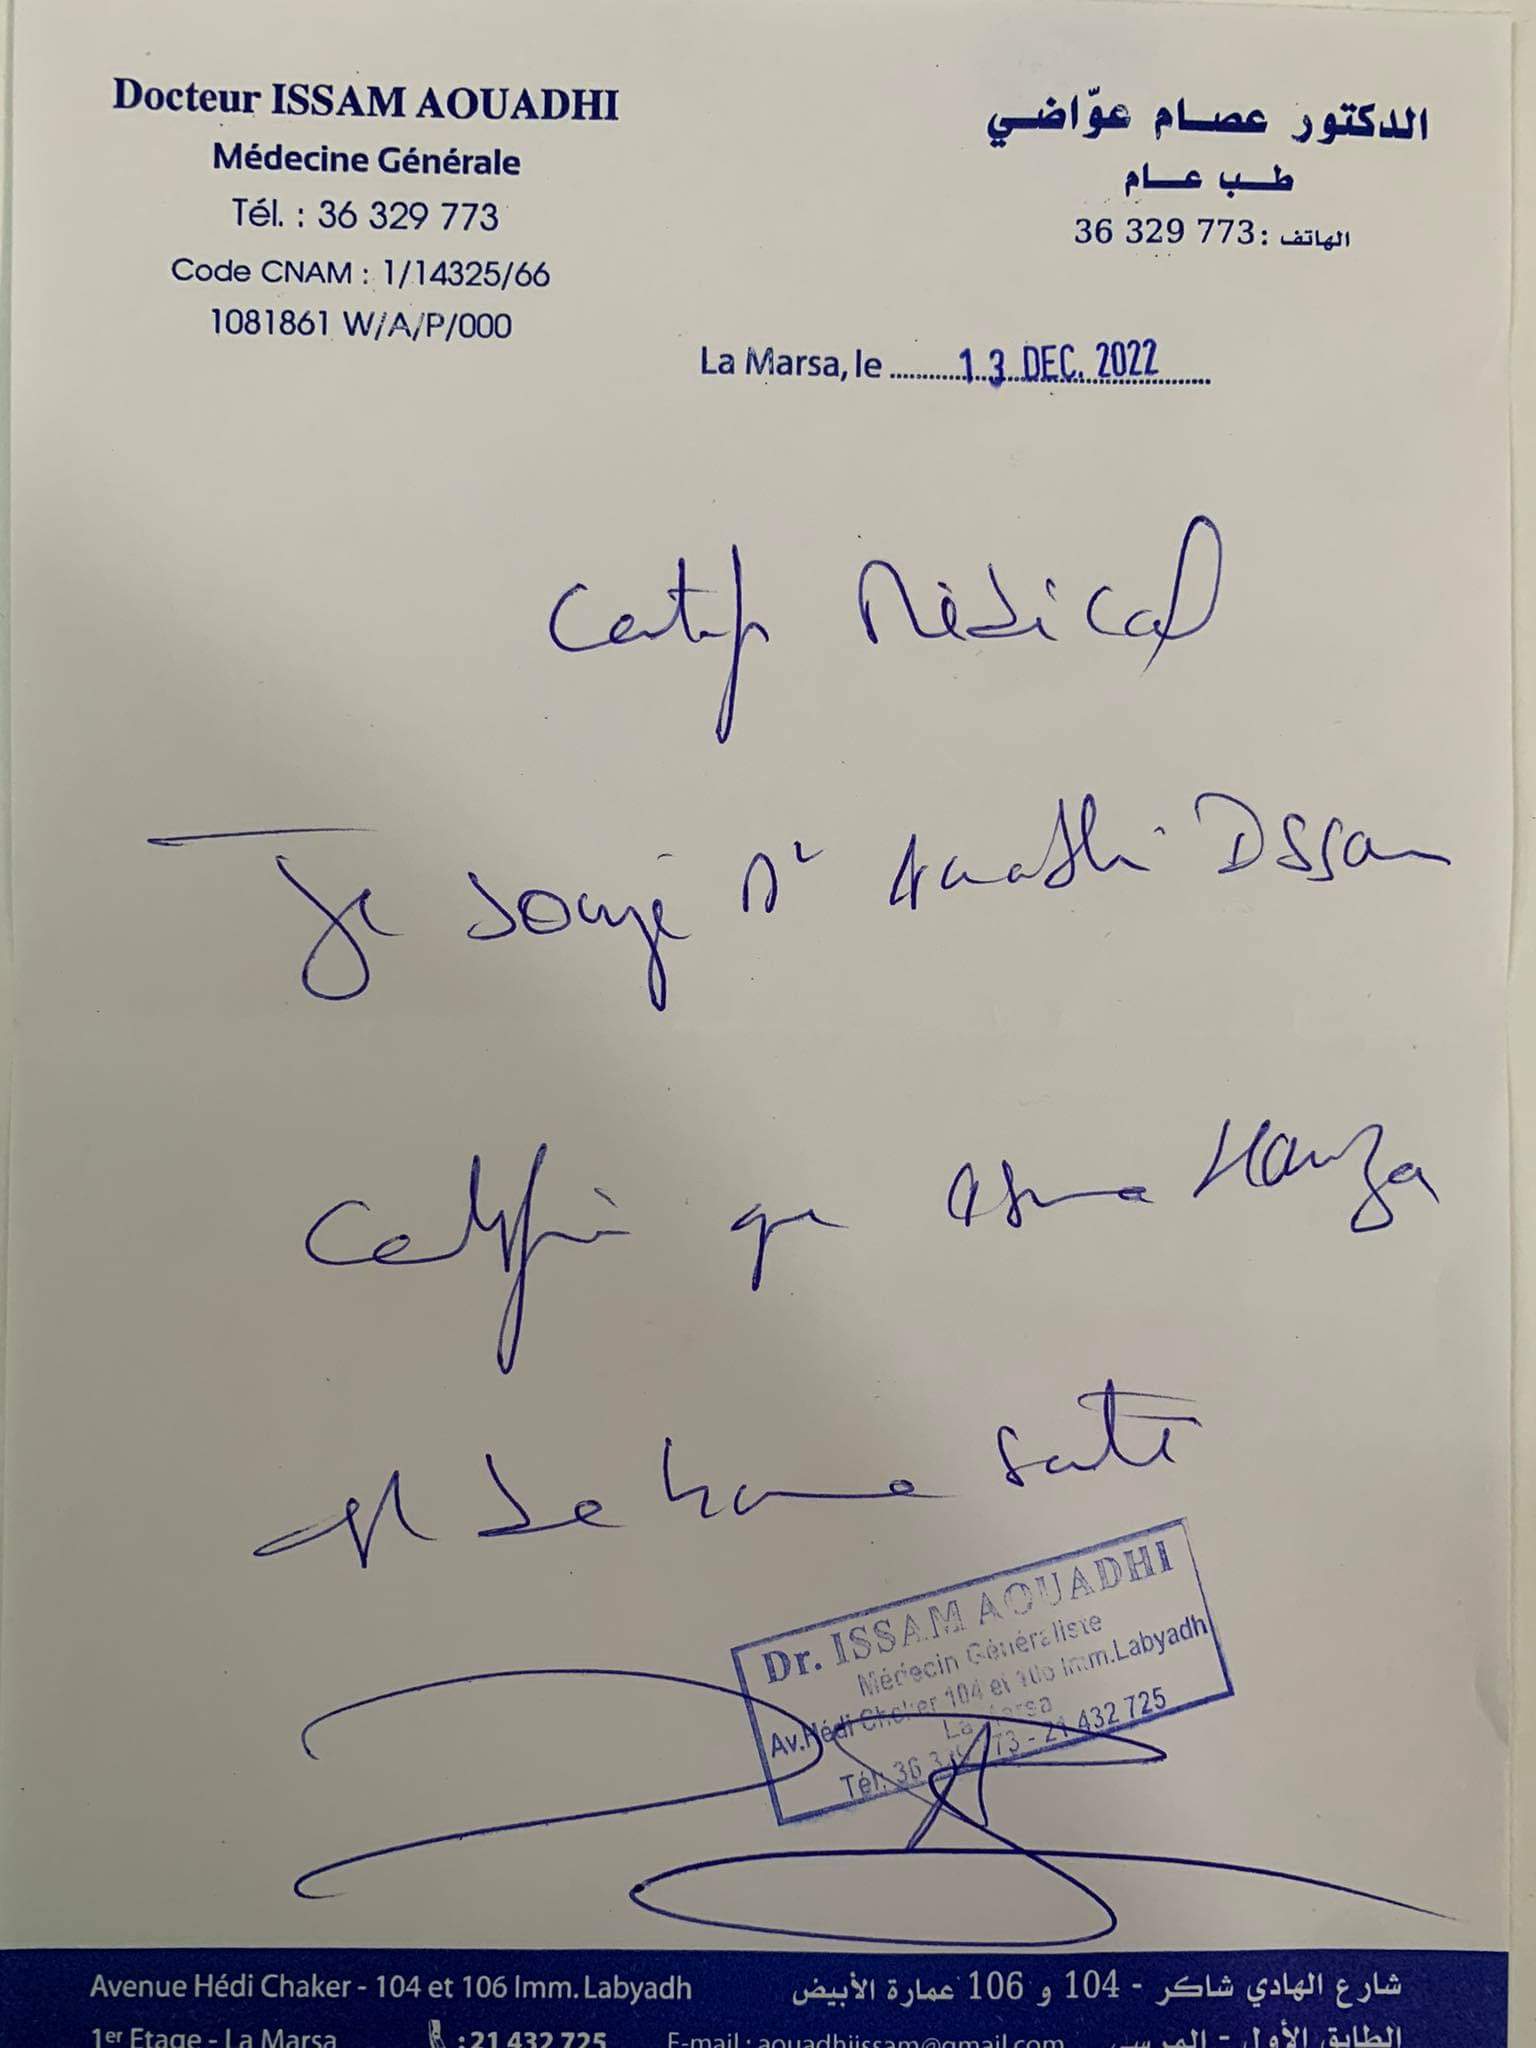 Docteur ISSAM AOUADHI
Médecine Générale
Tél. : 36 329 773
Code CNAM : 1/14325/66
1081861 W/A/P/000
الدكتور عصام عوّاضي
طب عام
الهاتف : 36 329 773
La Marsa, le 13 DEC. 2022
Certif Médical
Je soussigné Dr Aouadhi Issam
Certifie que Asma Hamza
est de bonne santé
Dr. ISSAM AOUADHI
Médecin Généraliste
Av.Hédi Chaker 104 et 106 Imm.Labyadh
La Marsa
Tél: 36 329 773 - 21 432 725
Avenue Hédi Chaker - 104 et 106 Imm. Labyadh
شارع الهادي شاكر - 104 و 106 عمارة الأبيض
1er Etage - La Marsa : 21 432 725 E-mail : aouadhiissam@gmail.com
الطابق الأول - المرسى